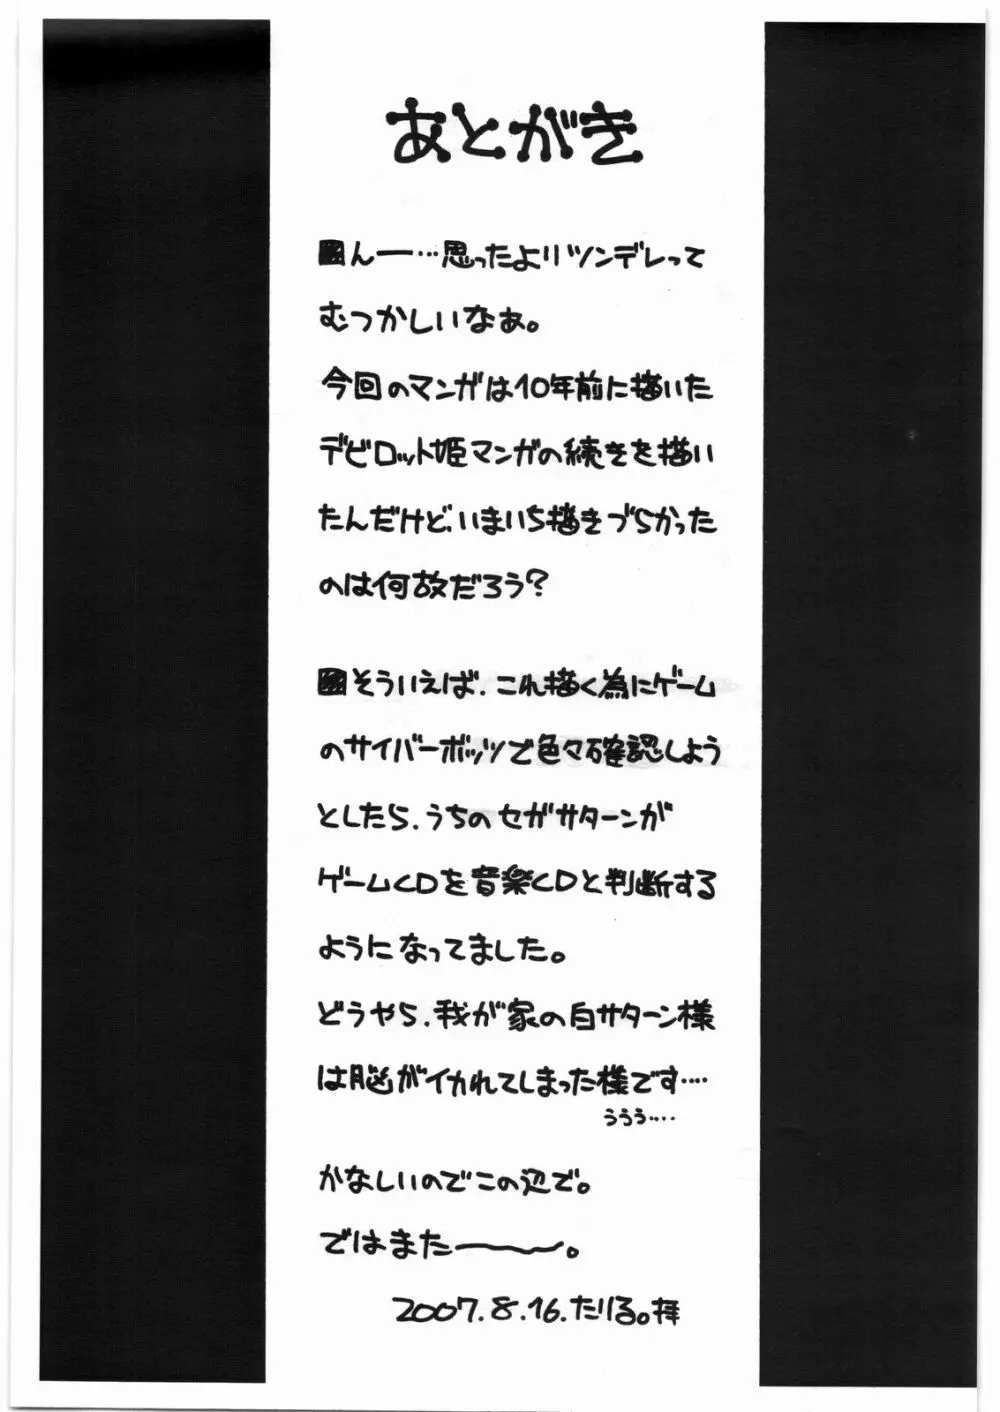 あとがき
んー…思ったよりツンデレって
むつかしいなぁ。
今回のマンガは10年前に描いた
デビロット姫マンガの続きを描い
たんだけど、いまいち描きづらかった
のは何故だろう?
そういえば、これ描く為にゲーム
のサイバーボッツで色々確認しよう
としたら、うちのセガサターンが
ゲームCDを音楽CDと判断する
ようになってました。
どうやら、我が家の白サターン様
は脳がイカれてしまった様です‥‥
ううう‥‥
かなしいのでこの辺で。
ではまた――〜。
2007.8.16.たりる。拝